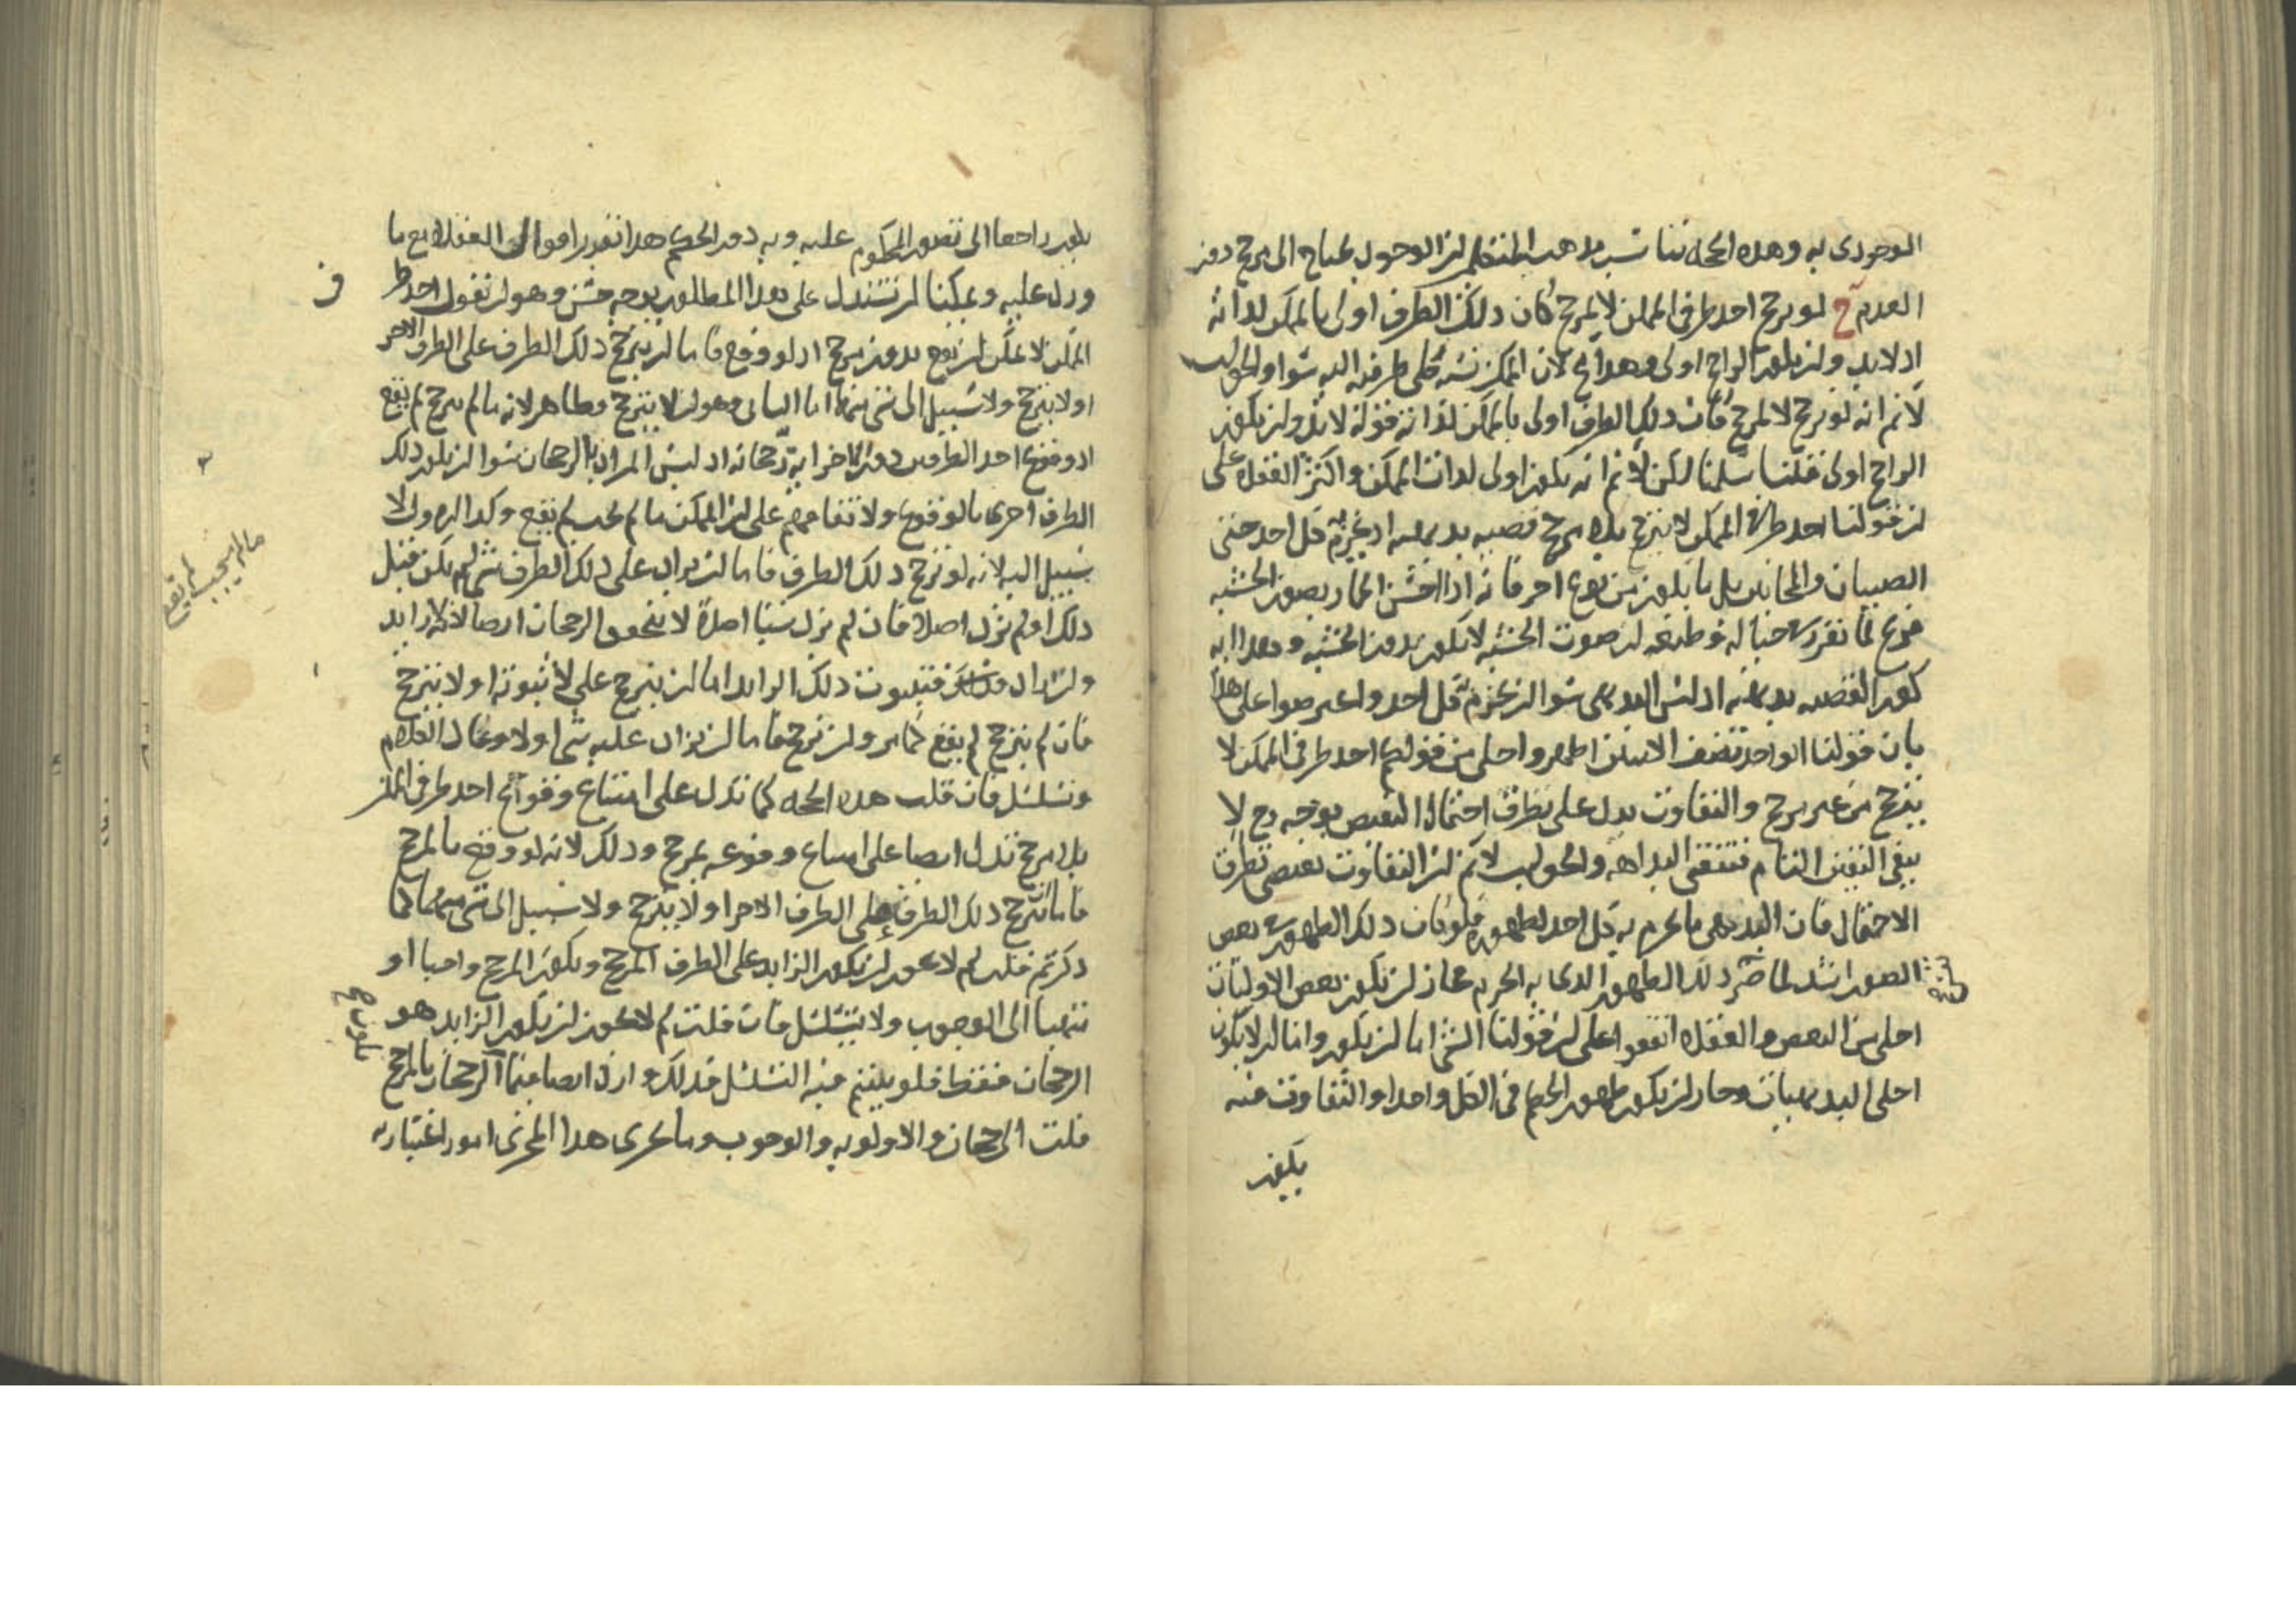 الوجودى به وهذه الحجه تناسب مذهب المتكلم لان الوجود يحتاج الى مرجح دون
العدم ح لو ترجح احد طرفى الممكن لا لمرجح كان ذلك الطرف اولى بالممكن لذاته
اذ لا بد وان يكون الراجح اولى وهذا مح لان الممكن نسبة كلى طرفيه اليه سوا والجواب
لا نم انه لو ترجح لا لمرجح كان ذلك الطرف اولى بالممكن لذاته قوله لا بد وان يكون
الراجح اولى قلنا سلمنا لكن لا نم انه يكون اولى لذات الممكن واكثر العقلا على
ان قولنا احد طرفى الممكن لا يترجح بلا مرجح قضيه بديهيه اذ يجزم به كل احد حتى
الصبيان والمجانين بل ما يكون من نوع اخر فانه اذا احس الحمار بصوت الخشبه
فزع لما تقرر فى طبعه ان صوت الخشبه لا يكون بدون الخشبه وهذا ايه
كون القضيه بديهيه اذ ليس البديهى سوا ان يجزم به كل احد واعترضوا على هذا
بان قولنا الواحد نصف الاثنين اظهر واجلى من قولكم احد طرفى الممكن لا
يترجح من غير مرجح والتفاوت يدل على تطرق احتمال النقيض بوجه وح لا
يبقى اليقين التام فتنتفى البداهه والجواب لا نم ان التفاوت يقتضى تطرق
الاحتمال فان البديهى ما يجزم به كل احد لظهوره فلو كان ذلك الظهور فى بعض
الصور اشد لما ضر ذلك الظهور الذى به الجزم فجاز ان يكون بعض الاوليات
اجلى من البعض والعقلا اتفقوا على ان قولنا الشى اما ان يكون واما ان لا يكون
اجلى البديهيات وجاز ان يكون ظهور الحكم فى الكل واحدا والتفاوت فيه
يكون
يكون راجعا الى تصور المحكوم عليه وبه دون الحكم هذا تقرير اقوال العقلا مع ما
ورد عليه ويمكننا ان نستدل على هذا المطلوب بوجه حسن وهو ان نقول احد طر
فى
الممكن لا يمكن ان يقع بدون مرجح اذ لو وقع فاما ان يترجح ذلك الطرف على الطرف الاخر
او لا يترجح ولا سبيل الى شى منهما اما الثانى وهو ان لا يترجح فظاهر لانه ما لم يترجح لم يقع
اذ وقوع احد الطرفين دون الاخر اية رجحانه اذ ليس المراد بالرجحان سوا ان يكون ذلك
الطرف احرى بالوقوع ولاتفاقهم على ان الممكن ما لم يجب لم يقع وكذا الاول لا
سبيل اليه لانه لو ترجح ذلك الطرف فاما ان يزاد على ذلك الطرف شى لم يكن قبل
ذلك او لم يزد اصلا فان لم يزد شيئا اصلا لا يتحقق الرجحان ايضا لانه زايد
وان زاد فثبوت ذلك الزايد اما ان يترجح على لا ثبوته او لا يترجح
فان لم يترجح لم يقع كما مر وان ترجح فاما ان يزاد عليه شى او لا وعاد الكلام
وتسلسل فان قلت هذه الحجه كما تدل على امتناع وقوع احد طرفى الممكن
بلا مرجح تدل ايضا على امتناع وقوعه بمرجح وذلك لانه لو وقع بالمرجح
فاما يترجح ذلك الطرف على الطرف الاخر او لا يترجح ولا سبيل الى شى منهما كما
ذكرتم قلت لم لا يجوز ان يكون الزايد على الطرف المرجح ويكون المرجح واجبا او
منتهيا الى الوجوب ولا يتسلسل فان قلت لم لا يجوز ان يكون الزايد هو
الرجحان فقط فلو يلزم فيه التسلسل فذلك وارد ايضا فيما الرجحان بالمرجح
قلت الرجحان والاولويه والوجوب وما يجرى هذا المجرى امور اعتباريه
ما لم يجب لم يقع